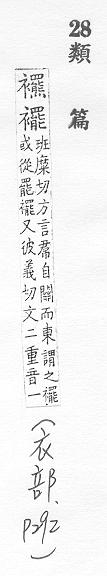 28
類篇
襬䙓班糜切方言帬自關而東謂之襬
或從罷襬又彼義切文二重音一
(衣部、
P292)